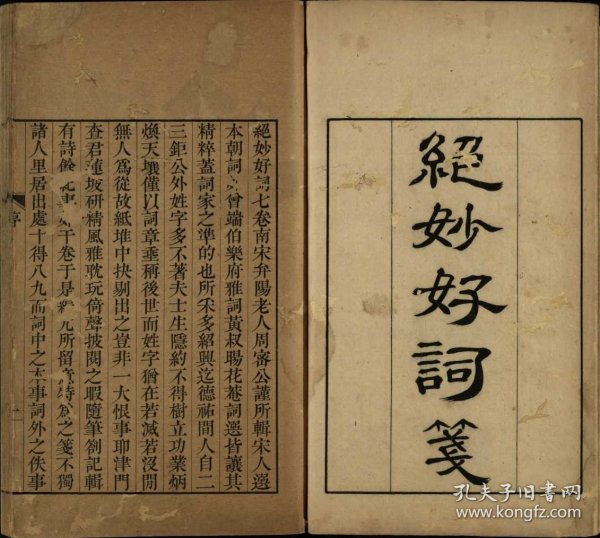 絕妙好詞箋
絕妙好詞七卷南宋弁陽老人周密公謹所輯宋人選
本朝詞如曾端伯樂府雅詞黃叔暘花菴詞選皆讓其
精粹蓋詞家之準的也所采多紹興迄德祐間人自二
三鉅公外姓字多不著夫士生隱約不得樹立功業炳
煥天壤僅以詞章垂稱後世而姓字猶在若滅若沒間
無人為從故紙堆中抉剔出之豈非一大恨事耶津門
查君蓮坡研精風雅耽玩倚聲披閱之暇隨筆劄記輯
有詩餘紀事若干卷于是編尤所留意特為之箋不獨
諸人里居出處十得八九而詞中之本事詞外之佚事
序
一
孔夫子旧书网
www.kongfz.com